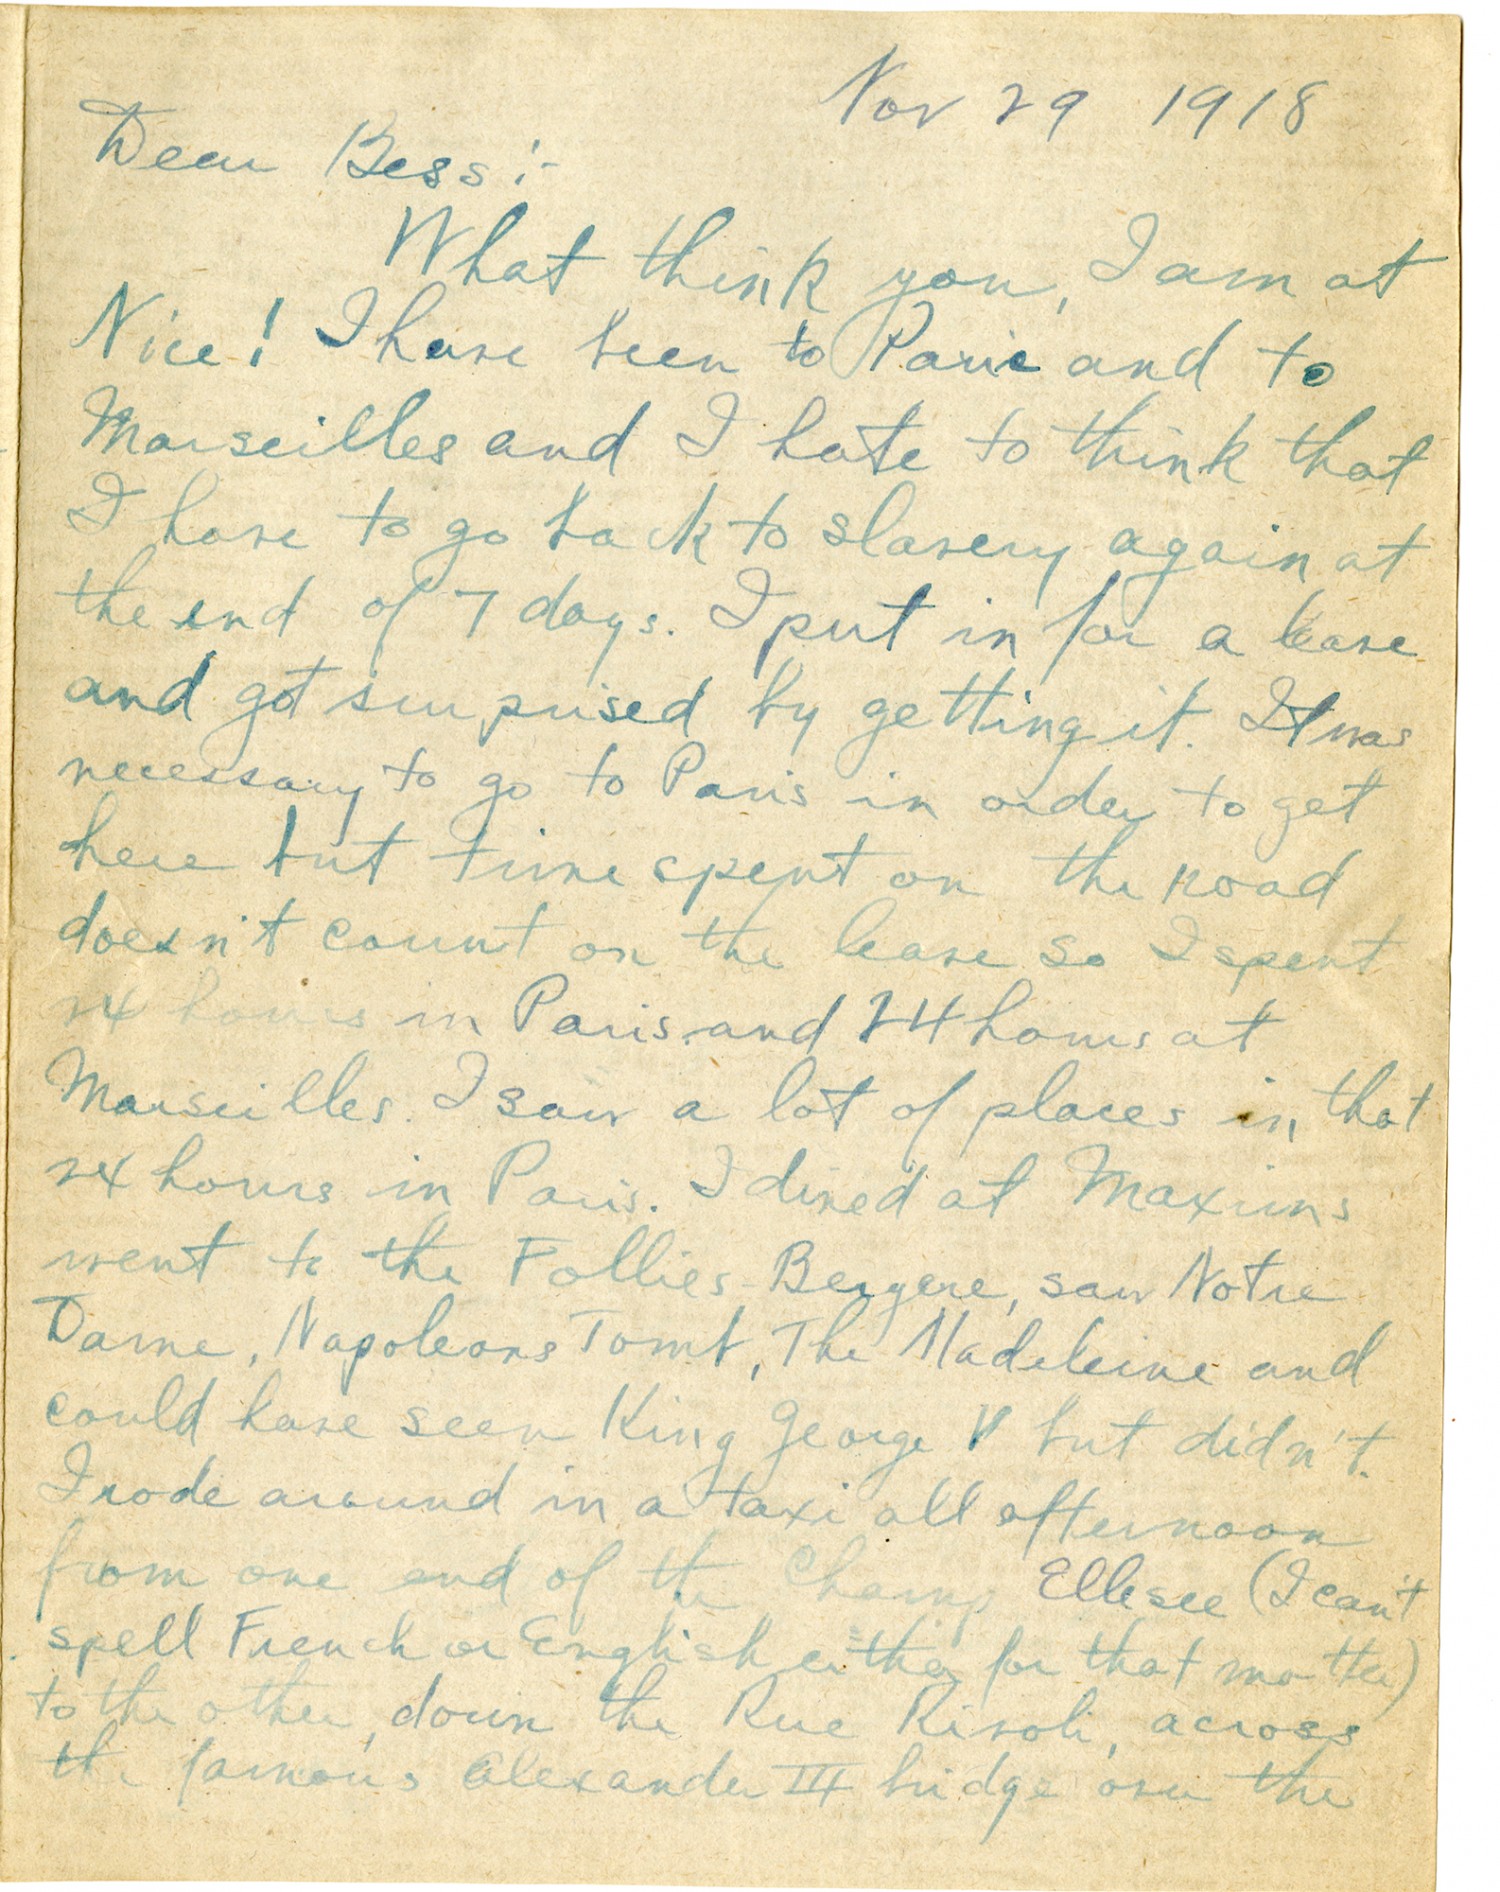 Nov 29 1918
Dear Bess:-
What think you, I am at
Nice! I have been to Paris and to
Marseilles and I hate to think that
I have to go back to slavery again at
the end of 7 days. I put in for a leave
and got surprised by getting it. It was
necessary to go to Paris in order to get
here but time spent on the road
doesn't count on the leave so I spent
24 hours in Paris and 24 hours at
Marseilles. I saw a lot of places in that
24 hours in Paris. I dined at Maxims
went to the Follies Bergere, saw Notre
Dame, Napoleons Tomb, The Madeleine and
could have seen King George V but didn't.
I rode around in a taxi all afternoon
from one end of the Champ Ellesee (I can't
spell French or English either for that matter)
to the other, down the Rue Rivoli, across
the famous Alexander III bridge over the